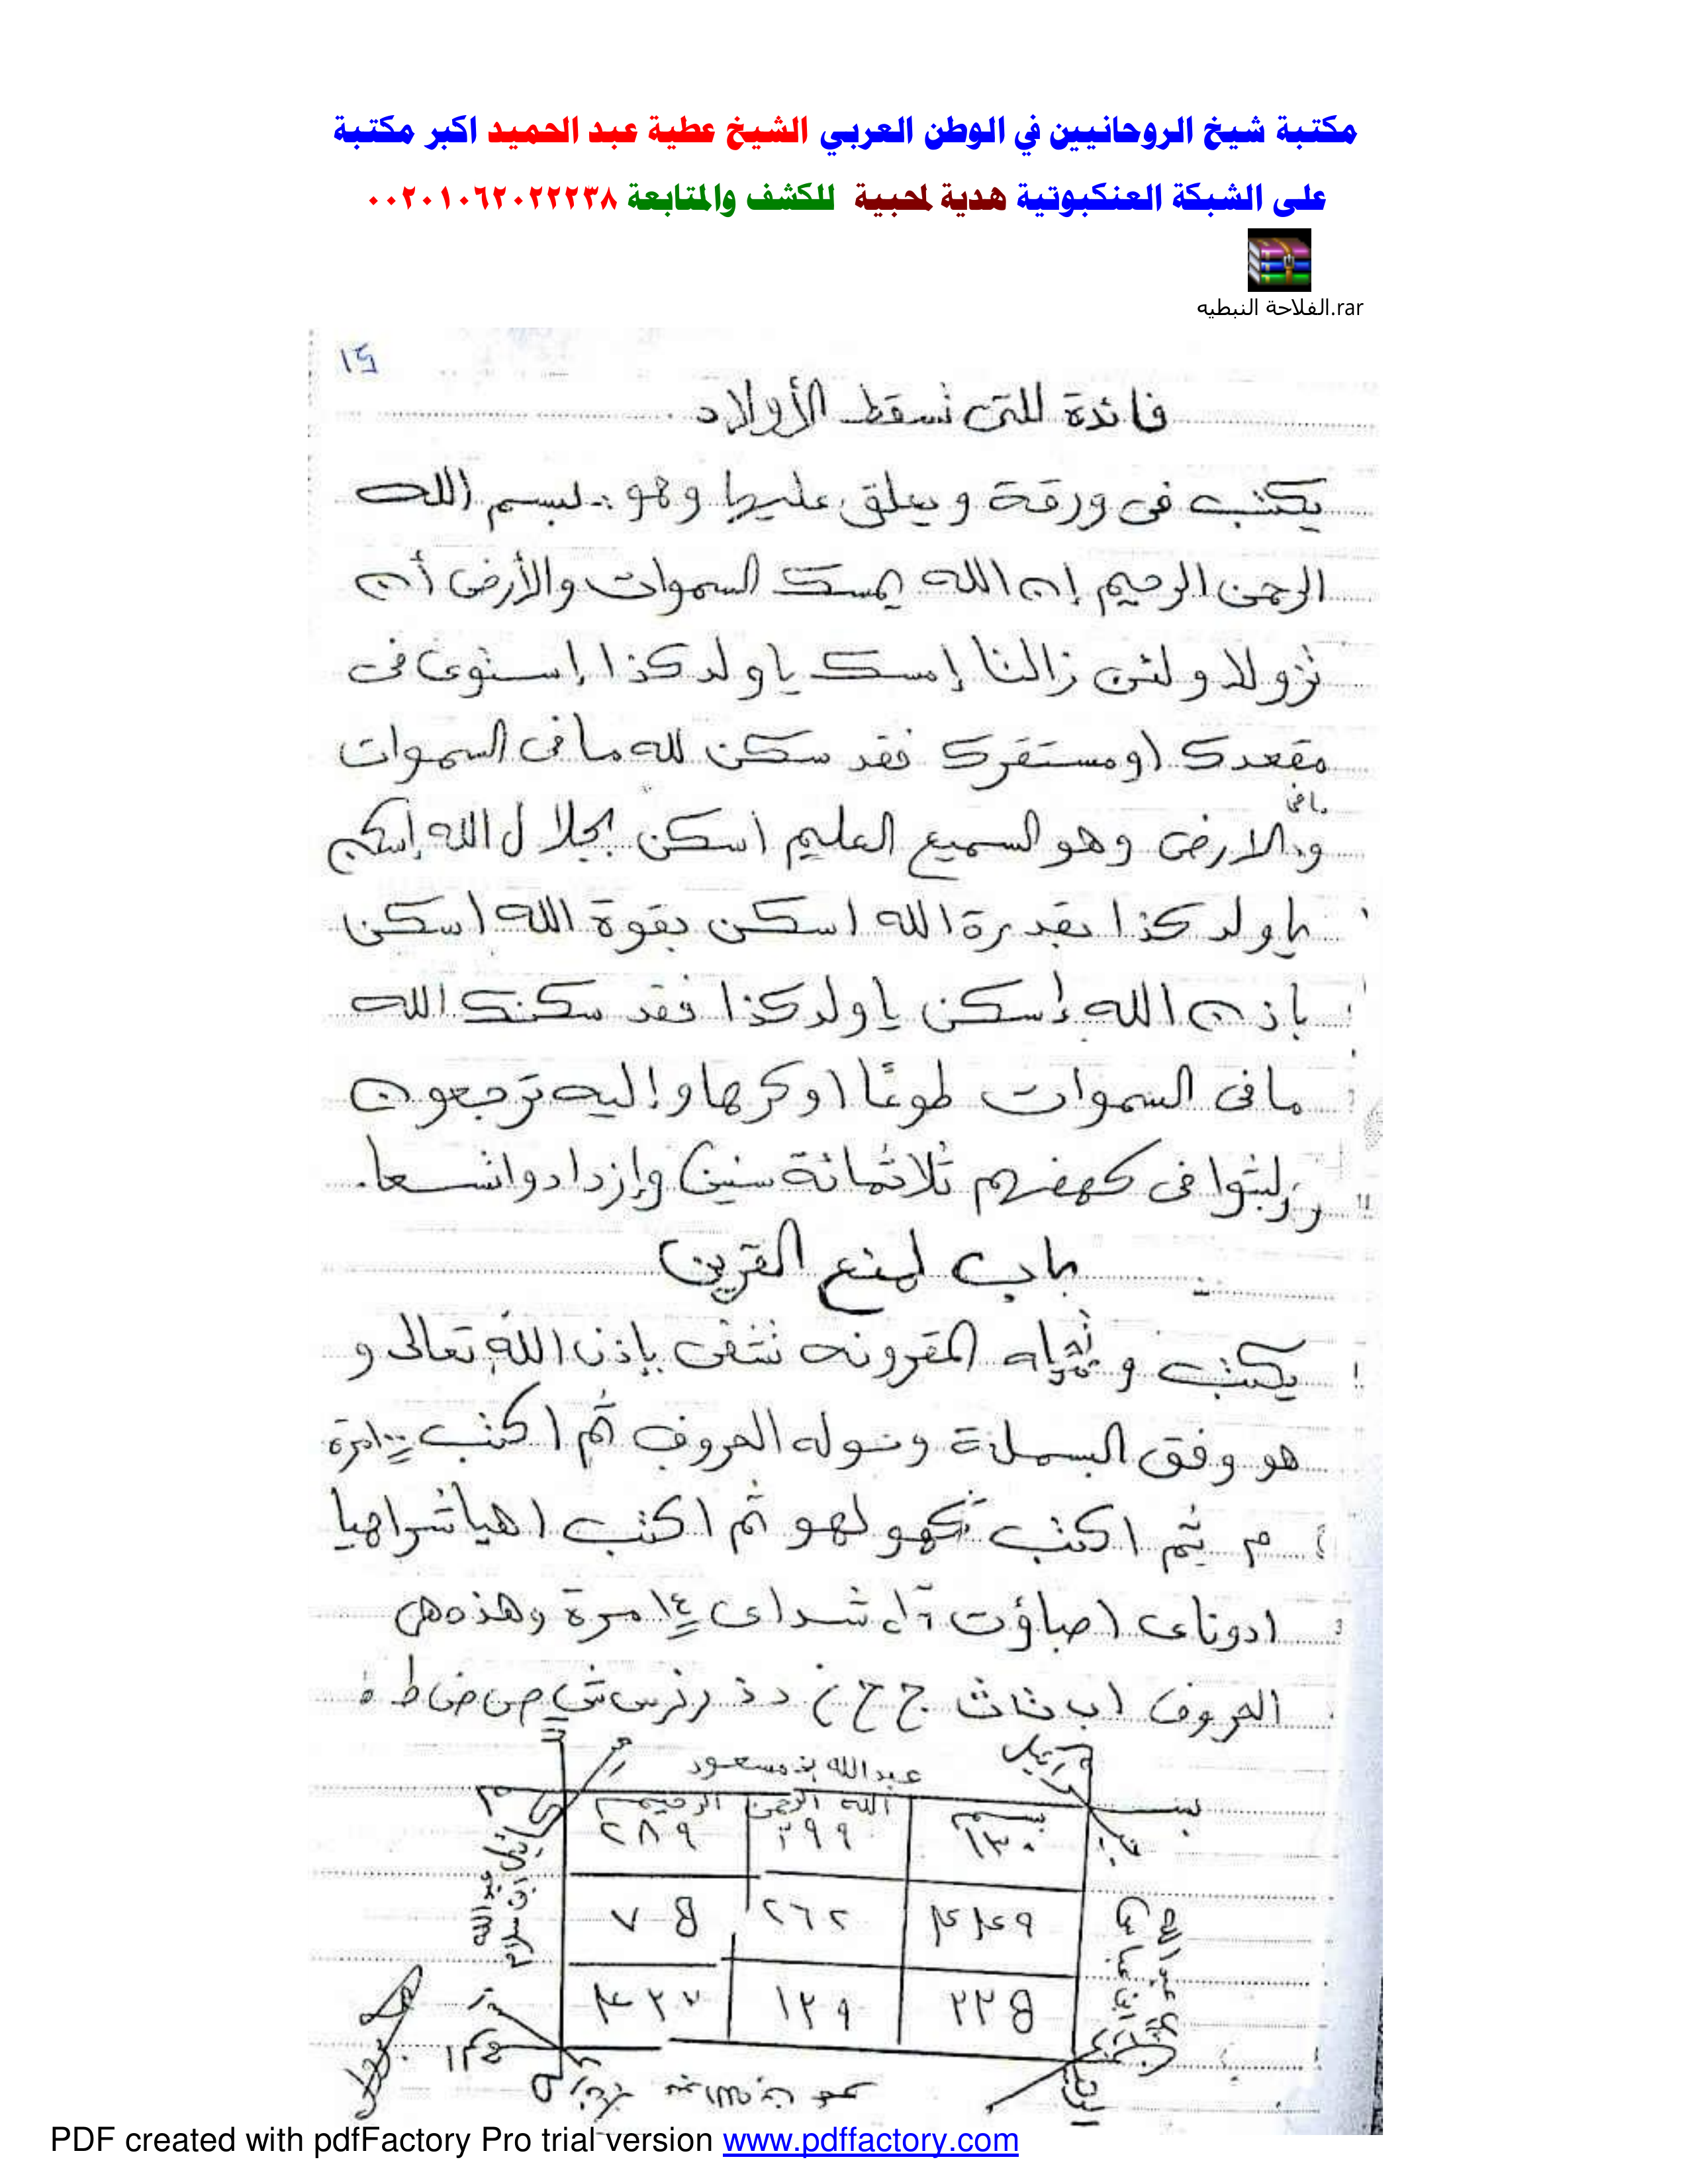 مكتبة شيخ الروحانيين في الوطن العربي الشيخ عطية عبد الحميد اكبر مكتبة
على الشبكة العنكبوتية هدية لمحبية للكشف والمتابعة ٠٠٢٠١٠٦٢٠٢٢٢٣٨
الفلاحة النبطيه.rar
فائدة للتى تسقط الأولاد
يكتب فى ورقة ويعلق عليها وهو :- بسم الله
الرحمن الرحيم إن الله يمسك السموات والأرض أن
تزولا ولئن زالتا إمسك يا ولد كذا إستوى فى
مقعدك او مستقرك فقد سكن لله ما فى السموات
وما فى الارض وهو السميع العليم اسكن بجلال الله إسكن
يا ولد كذا بقدرة الله اسكن بقوة الله اسكن
باذن الله إسكن يا ولد كذا فقد سكنك الله
ما فى السموات طوعًا او كرها وإليه ترجعون
ولبثوا فى كهفهم ثلاثمائة سنين وإزدادوا تسعا.
باب لمنع القرين
يكتب و المقرونه تشفى بإذن الله تعالى و
هو وفق البسملة وحوله الحروف ثم اكتب مرة
م ثم اكتب لهو ثم اكتب اهيا شراهيا
ادوناى اصباؤت آل شداى ١٤ مرة وهذه هى
الحروف ا ب ت ث ج ح خ د ذ ر ز س ش ص ض ط
عبد الله بن مسعود
بسم الله الرحمن الرحيم
١٣٠ ٣٩٩ ٢٨٩
٢٦٢
١٢٩
عبد الله ابن عباس
عبد الله ابن سلام